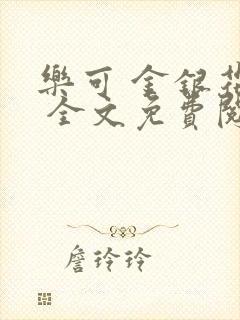 樂可 金銀花
全文免費閱
詹玲玲